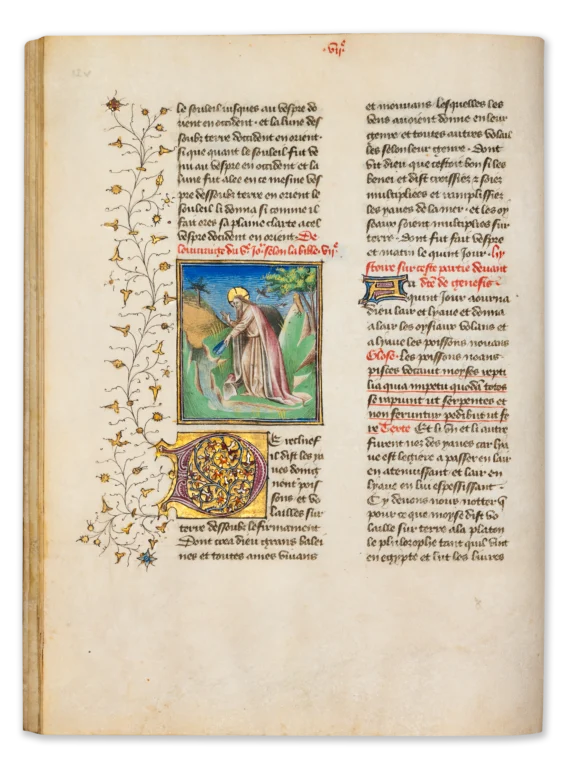 .vii.
le souleil iusques au vespre de
vient en occident · et la lune des
soubz terre doccident en orient ·
si que quant le souleil fut ve
nu au vespre en occident et la
lune fut alee en ce mesme ves
pre dessoubz terre en orient le
souleil li donna si comme il
fait ores sa plaine clarte a cel
vespre doccident en orient · De
louuraige du v. io. selon la bible · vii.
De rechief
il dist les ia
ues doing
nent pois
sons et vo
lailles sur
terre dessoubz le firmament
Dont crea dieu grans balei
nes et toutes ames viuans
et mouuans lesquelles les
eaues auoient donne en leur
genre et toutes autres volail
les selon leur genre · Dont
vit dieu que cestoit bon si les
beney et dist croissies et soies
multiplies et ramplissies
les yaues de la mer · et les oy
seaux soient multiplies sur
terre · dont fut fait vespre
et matin le quint iour · hy
stoire sur ceste partie deuant
dcte de genesis ·
Au quint iour aourna
dieu lair et lyaue et donna
a lair les oysiaux volans et
a lyaue les poissons nouans
Glose · les poissons noans
pisces vocauit moyses repti
lia qua impetu quodam totos
se rapiunt ut serpentes et
non feruntur pedibus ut fe
re Texte Et li vn et li autre
furent nez des yaues car ia
ue est legiere a passer en lair
en atenuissant et lair en
lyaue en lui espessissant ·
Cy deuons nous notter q
pour ce que moyse dist vo
laille sur terre ala platon
le philozophe tant quil vint
en egypte et lut les liures